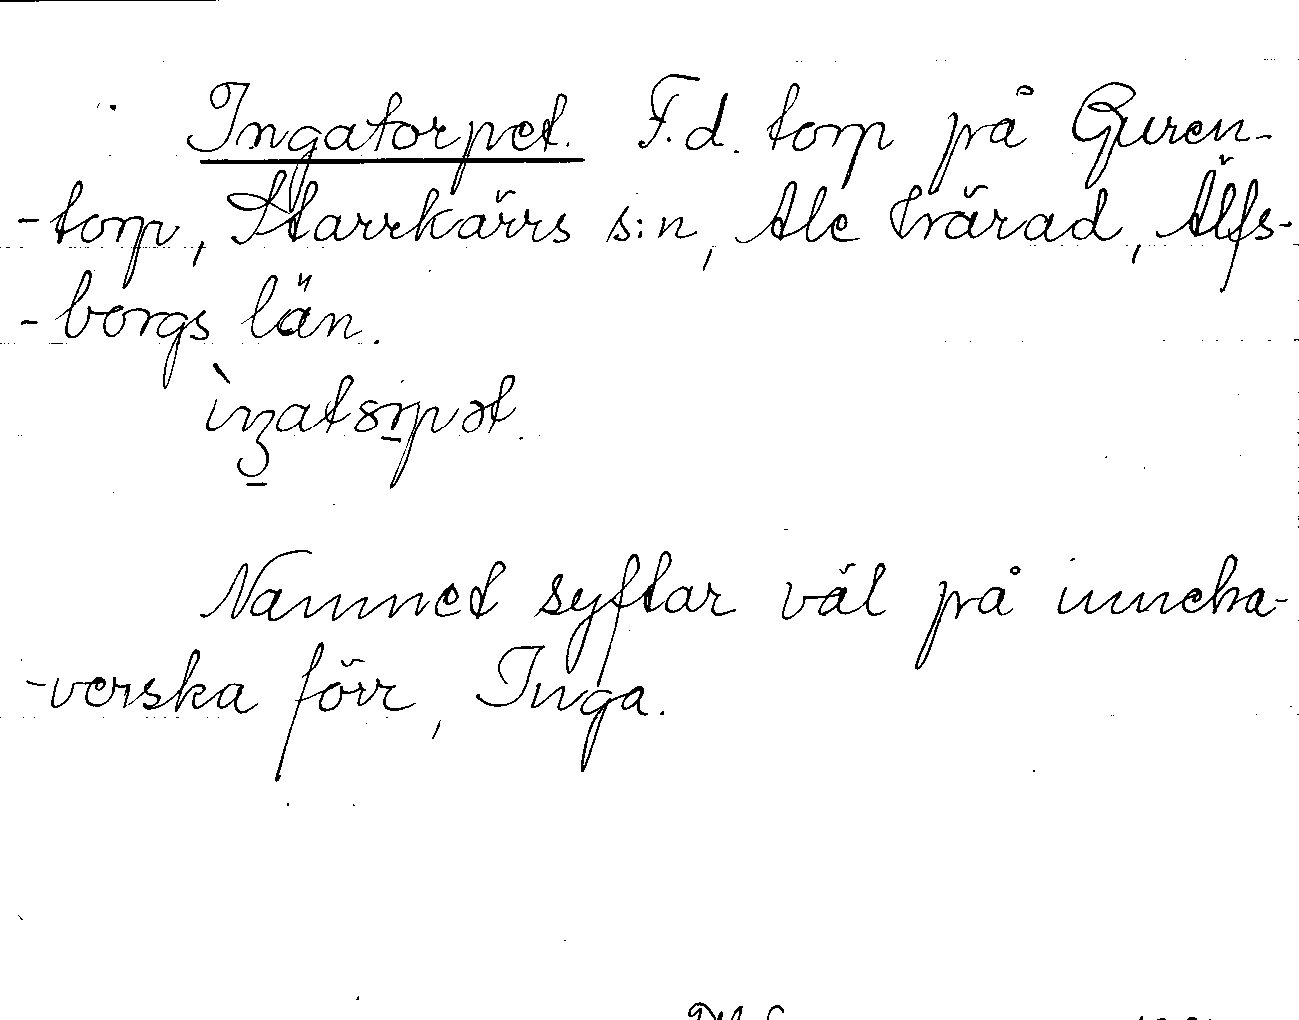 Ingatorpet. F.d. torp på Guren-
-torp, Starrkärrs s:n, Ale härad, Älfs-
-borgs län.
Namnet syftar väl på inneha-
-verska förr, Inga.